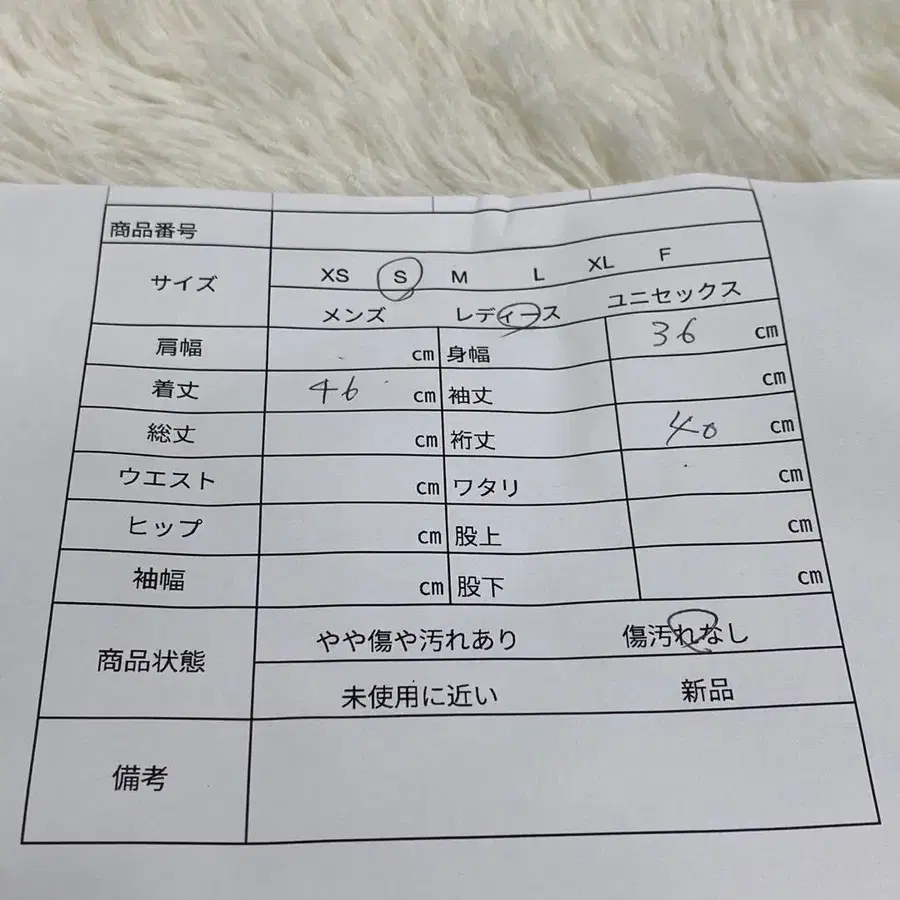 商品番号
サイズ XS S M L XL F
メンズ レディース ユニセックス
肩幅 cm 身幅 36 cm
着丈 46 cm 袖丈 cm
総丈 cm 裄丈 40 cm
ウエスト cm ワタリ cm
ヒップ cm 股上 cm
袖幅 cm 股下 cm
商品状態 やや傷や汚れあり 傷汚れなし
未使用に近い 新品
備考